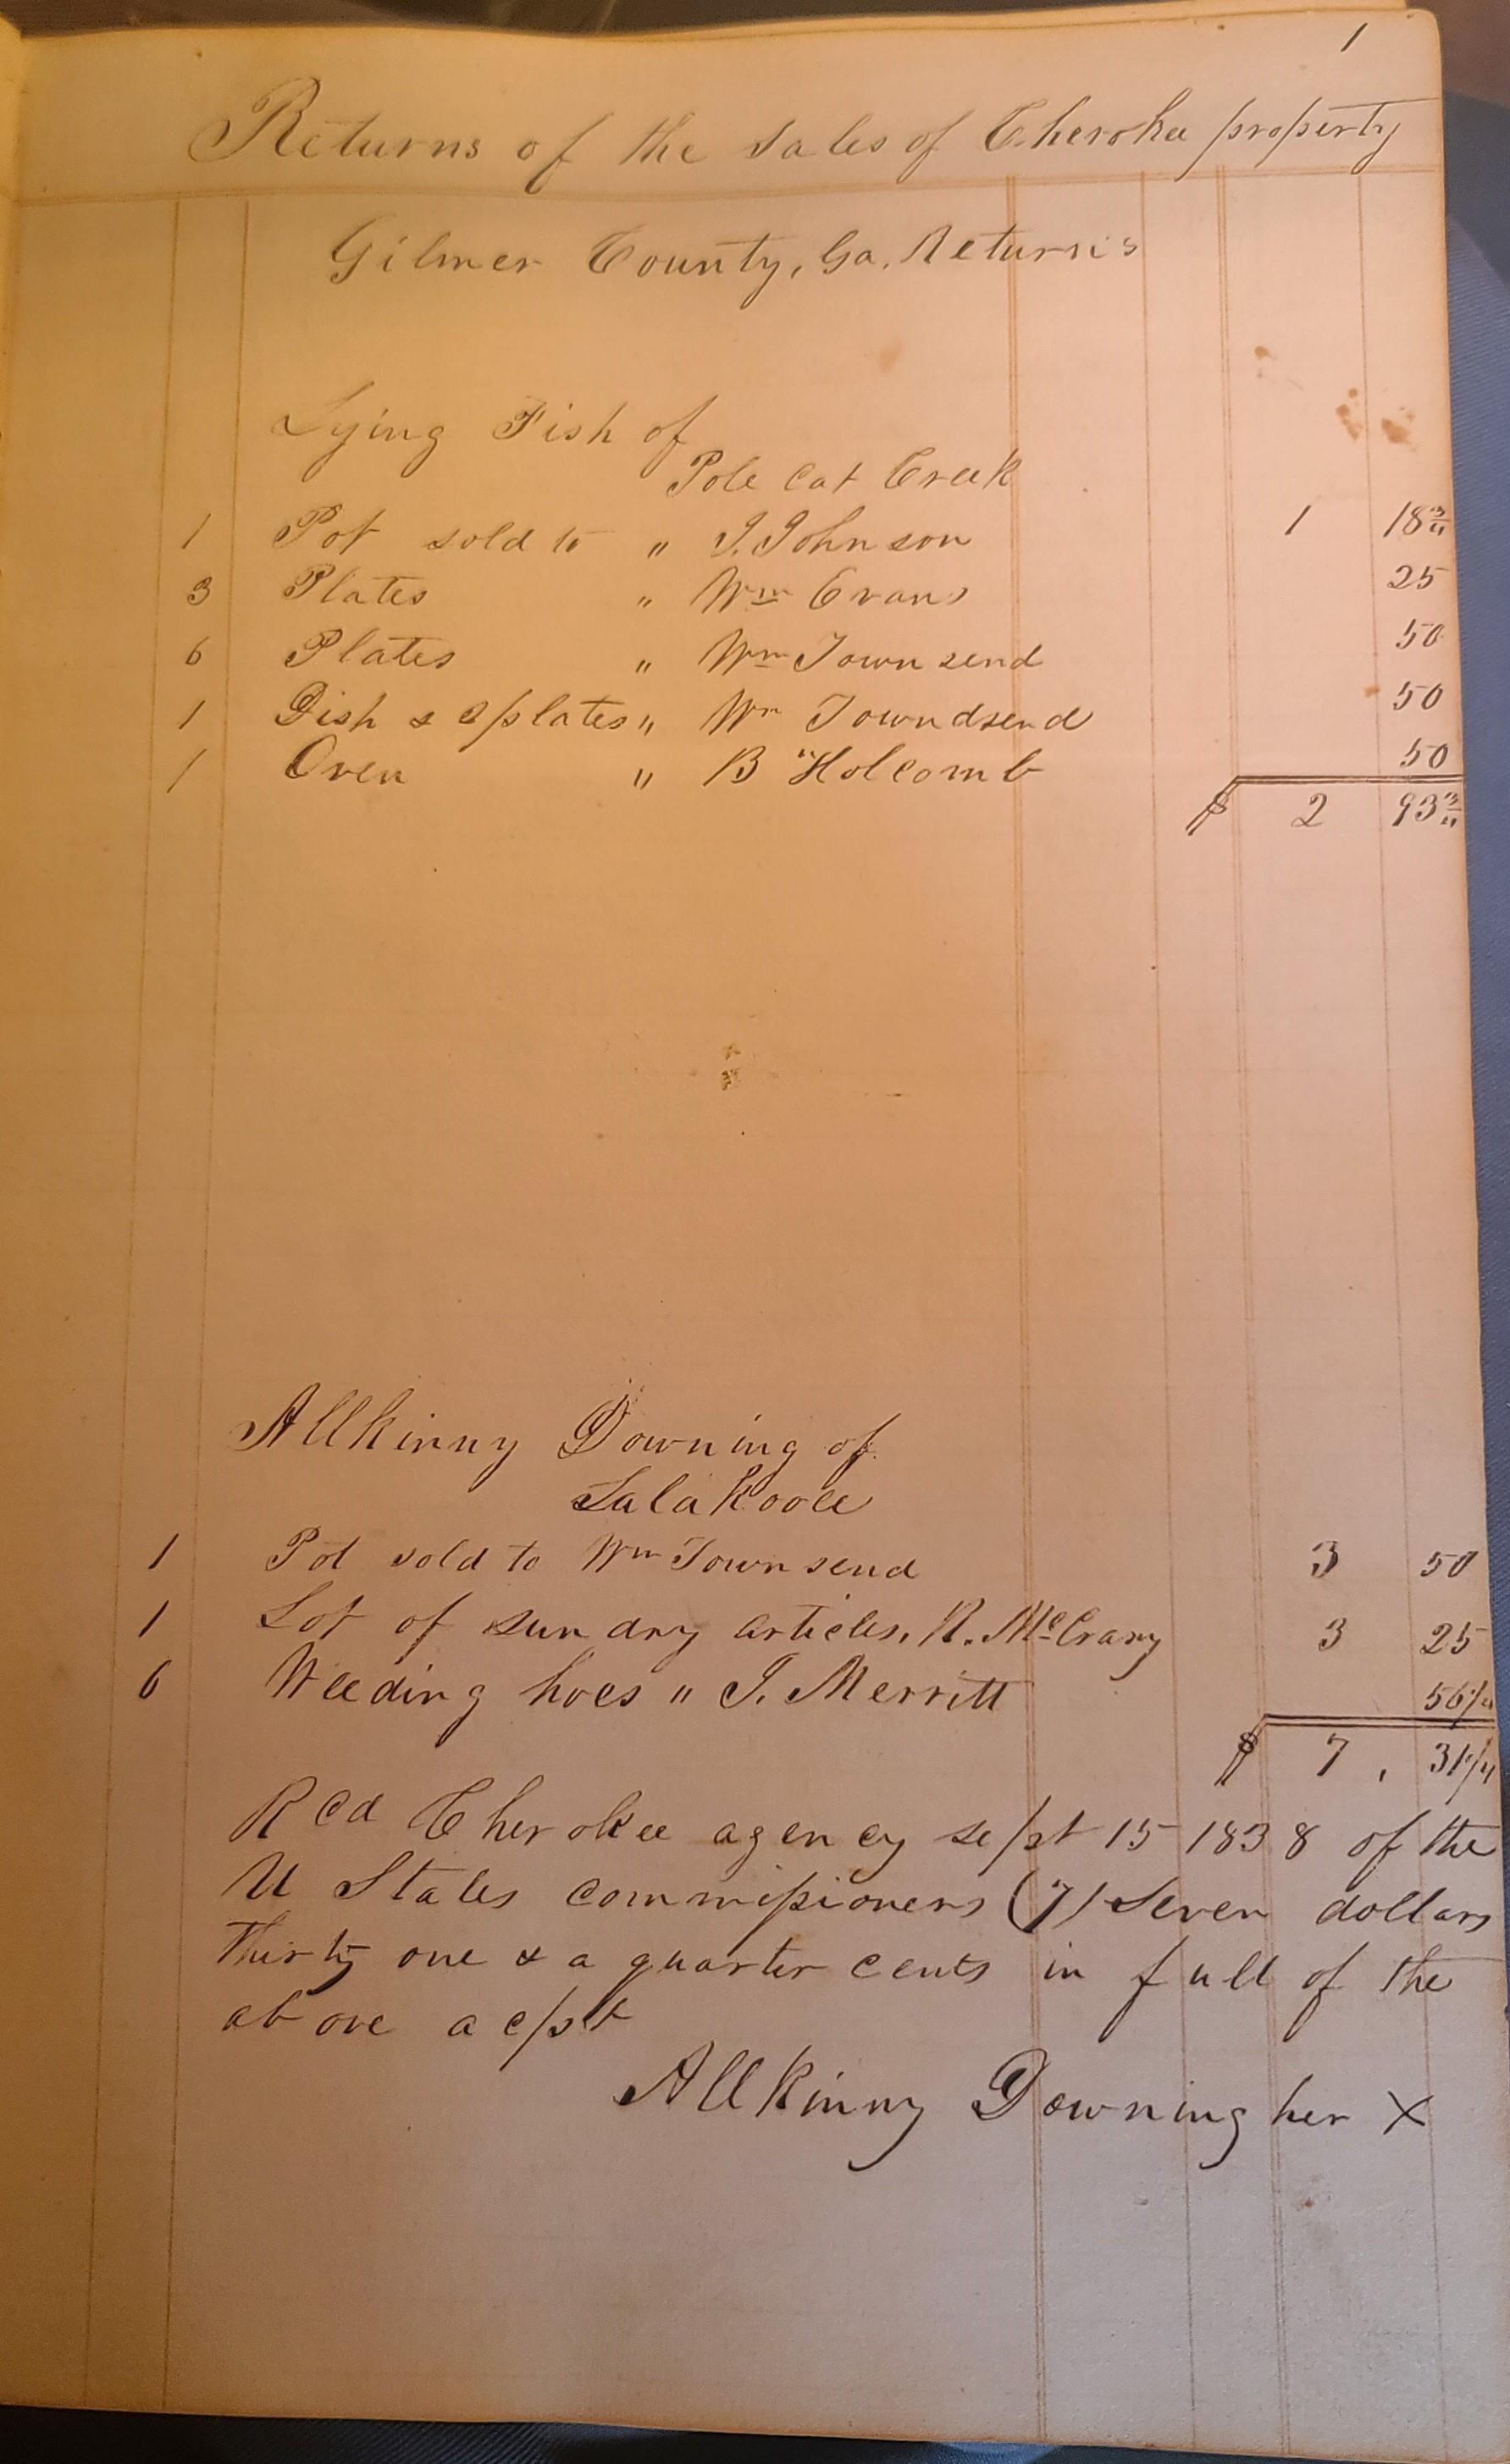 1
Returns of the sales of Cherokee property
Gilmer County, Ga. Returns
Lying Fish of
Pole Cat Creek
1 Pot sold to " J. Johnson 1 18 3/4
3 Plates " Wm Evans 25
6 Plates " Wm Townsend 50
1 Dish & plates " Wm Towndsend 50
1 Oven " B Holcomb 50
$ 2 93 3/4
Allkinny Downing of
Salakooee
1 Pot sold to Wm Townsend 3 50
1 Lot of sundry articles, R. McCrary 3 25
6 Weeding hoes " J. Merritt 56 1/4
$ 7, 31 1/4
Recd Cherokee agency sept 15 1838 of the
U States commissioners (7) Seven dollars
Thirty one & a quarter cents in full of the
above acpt
Allkinny Downing her X